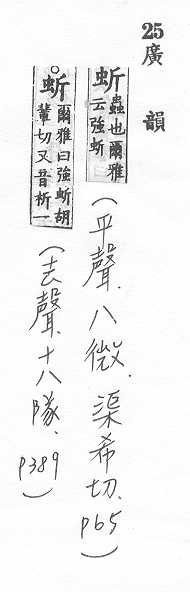 25廣韻
蚚蟲也爾雅
云強蚚
(平聲、八微、渠希切、p65)
○蚚爾雅曰強蚚胡
輩切又音析一
(去聲、十八隊、p389)